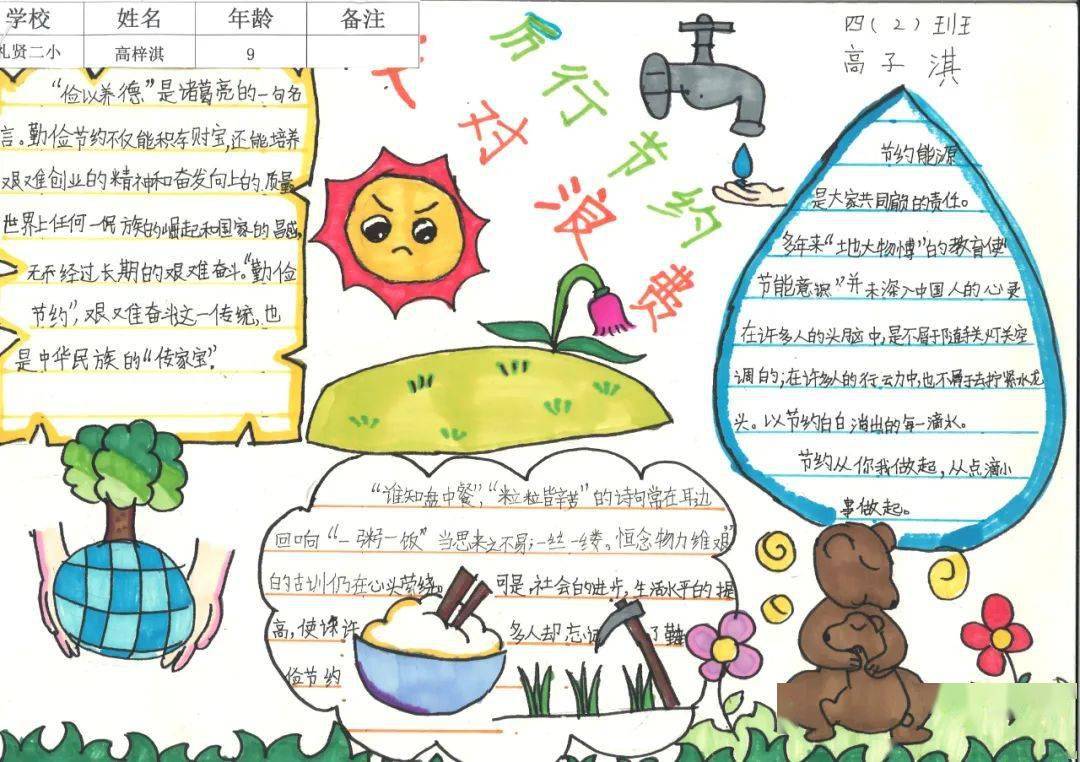 学校 姓名 年龄 备注
礼贤二小 高梓淇 9
厉行节约
反对浪费
四（2）班
高子淇
“俭以养德”是诸葛亮的一句名
言。勤俭节约不仅能积车财宝,还能培养
艰难创业的精神和奋发向上的质量
世界上任何一民族的崛起和国家的昌盛,
无不经过长期的艰难奋斗。“勤俭
节约”,艰难奋斗这一传统,也
是中华民族的“传家宝”.
节约能源
是大家共同的责任。
多年来“土地大物博”的教育使“
节能意识”并未深入中国人的心灵
在许多人的头脑中,是不屑于随手关灯关空
调的;在许多人的行动中,也不屑于去拧紧水龙
头。以节约白白消出的每一滴水。
节约从你我做起,从点滴小
事做起。
“谁知盘中餐”,“粒粒皆辛苦”的诗句常在耳边
回响“一粥一饭”当思来之不易;一丝一缕。恒念物力维艰”
的古训仍在心头萦绕。可是,社会的进步,生活水平的提
高,使许许多人却忘记了勤
俭节约